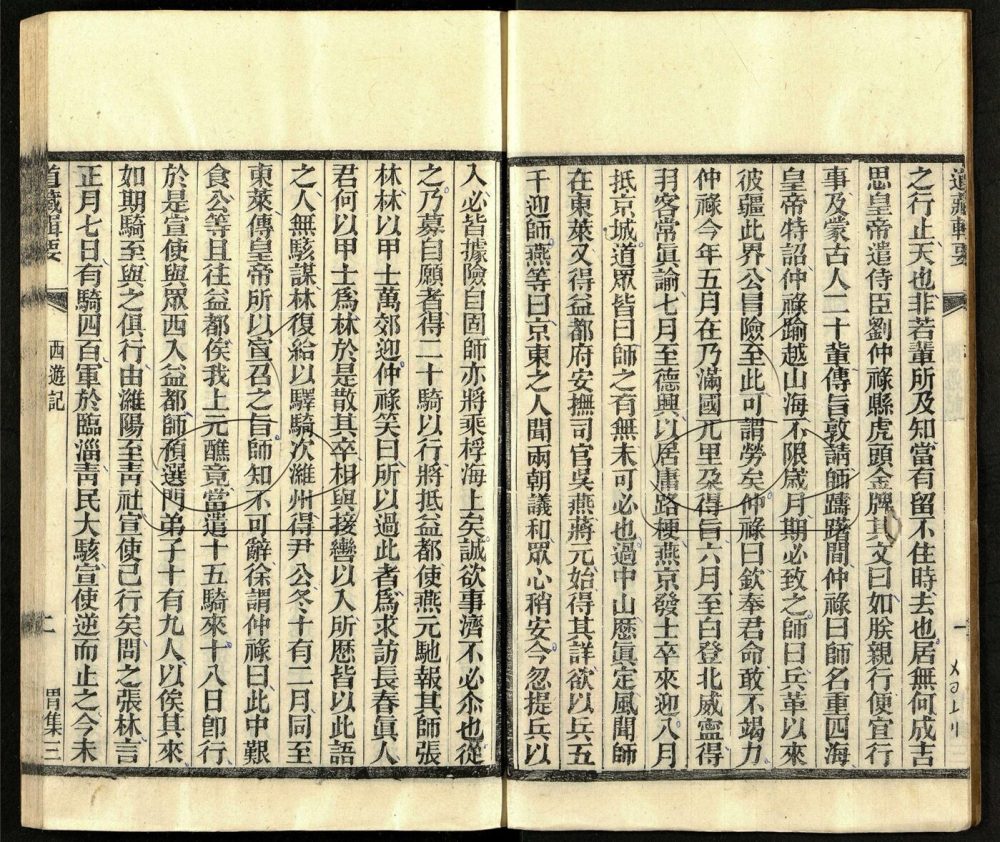 之行止天也非若輩所及知當有留不住時去也居無何成吉
思皇帝遣侍臣劉仲祿縣虎頭金牌其文曰如朕親行便宜行
事及蒙古人二十輩傳旨敦請師躊躇間仲祿曰師名重四海
皇帝特詔仲祿踰越山海不限歲月期必致之師曰兵革以來
彼疆此界公冒險至此可謂勞矣仲祿曰欽奉君命敢不竭力
仲祿今年五月在乃滿國兀里朶得旨六月至白登北威寧得
羽客常眞諭七月至德興以居庸路梗燕京發士卒來迎八月
抵京城道眾皆曰師之有無未可必也過中山歷眞定風聞師
在東萊又得益都府安撫司官吳燕蔣元始得其詳欲以兵五
千迎師燕等曰京東之人聞兩朝議和眾心稍安今忽提兵以
入必皆據險自固師亦將乘桴海上矣誠欲事濟不必尒也從
之乃募自願者得二十騎以行將抵益都使燕元馳報其師張
林林以甲士萬郊迎仲祿笑曰所以過此者爲求訪長春眞人
君何以甲士爲林於是散其卒相與接轡以入所歷皆以此語
之人無駭謀林復給以驛騎次濰州得尹公冬十有二月同至
東萊傳皇帝所以宣召之旨師知不可辭徐謂仲祿曰此中艱
食公等且往益都俟我上元醮竟當遣十五騎來十八日卽行
於是宣使與眾西入益都師預選門弟子十有九人以俟其來
如期騎至與之俱行由濰陽至靑社宣使已行矣問之張林言
正月七日有騎四百軍於臨淄靑民大駭宣使逆而止之今未
道藏輯要
西遊記
二
胃集三